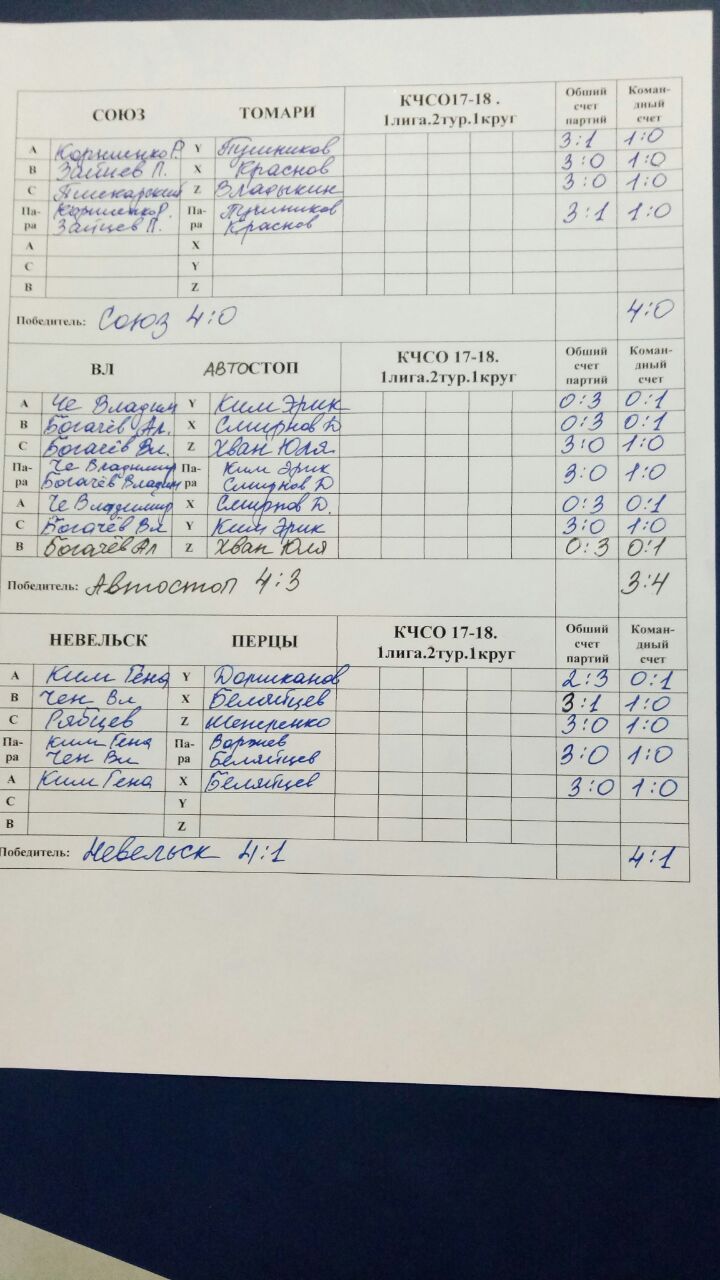 СОЮЗ ТОМАРИ КЧСО17-18 . 1лига.2тур.1круг Общий счет партий Коман-дный счет
А Корниенко Р. Y Пушников 3:1 1:0
В Зайцев П. X Краснов 3:0 1:0
С Z Владыкин 3:0 1:0
Па-ра Корниенко Р. Зайцев П. Па-ра Пушников Краснов 3:1 1:0
А X
С Y
В Z
Победитель: Союз 4:0 4:0
ВЛ АВТОСТОП КЧСО 17-18. 1лига.2тур.1круг Общий счет партий Коман-дный счет
А Че Владим Y Ким Эрик 0:3 0:1
В Богачёв Ал. X Смирнов Д 0:3 0:1
С Богачёв Вл. Z Хван Юля 3:0 1:0
Па-ра Че Владимир Богачёв Владим Па-ра Ким Эрик Смирнов Д 3:0 1:0
А Че Владимир X Смирнов Д. 0:3 0:1
С Богачёв Вл Y Ким Эрик 3:0 1:0
В Богачёв Ал Z Хван Юля 0:3 0:1
Победитель: Автостоп 4:3 3:4
НЕВЕЛЬСК ПЕРЦЫ КЧСО 17-18. 1лига.2тур.1круг Общий счет партий Коман-дный счет
А Ким Гена Y 2:3 0:1
В Чен Вл X Беляйцев 3:1 1:0
С Рябцев Z 3:0 1:0
Па-ра Ким Гена Чен Вл Па-ра Беляйцев 3:0 1:0
А Ким Гена X Беляйцев 3:0 1:0
С Y
В Z
Победитель: Невельск 4:1 4:1